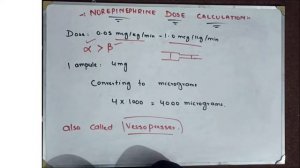 NOREPINEPHRINE DOSE CALCULATION
Dose: 0.05 mcg/kg/min - 1.0 mcg/kg/min
α > β
1 ampule: 4mg
Converting to micrograms
4 x 1000 = 4000 micrograms.
also called Vessopresser.